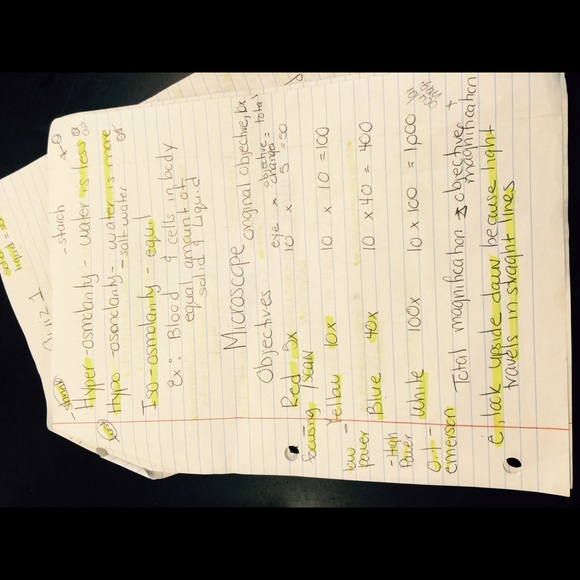 - starch
- Hyper-osmolarity - water is less
Hypo - osomolarity - water is more
- salt water
Iso - osmolarity - equil
ex: Blood & cells in body
equal amount of
solid & Liquid
Microscope
original objective,
Objectives
eye x objective change = total
Red 5x 10 x 5 = 50
focusing / scan
Yellow 10x 10 x 10 = 100
low power
Blue 40x 10 x 40 = 400
- High Power
White 100x 10 x 100 = 1,000
emersion
Total magnification objective magnification
e, look upside down because light
travels in straight lines